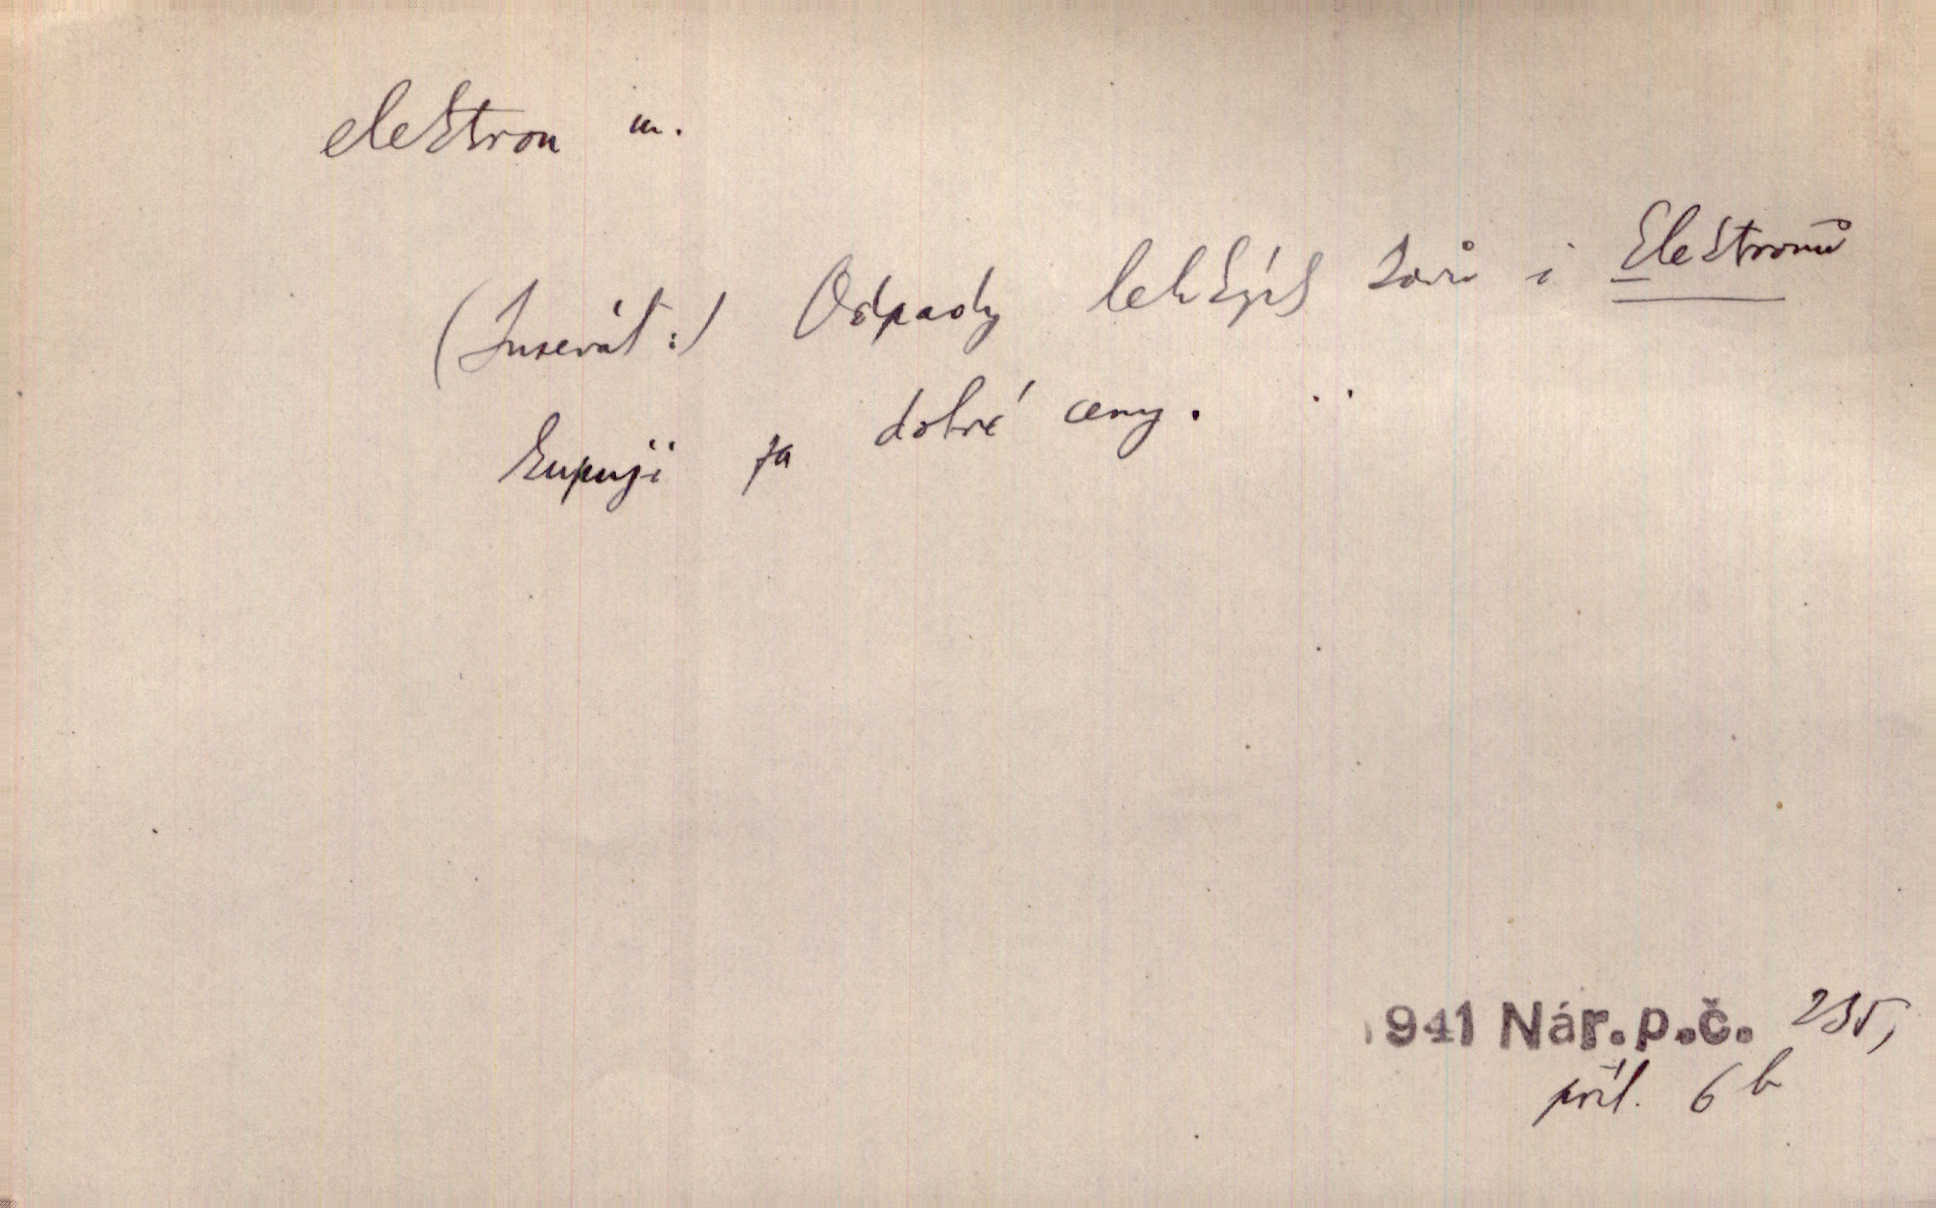 elektron m.
(Inserát:) Odpady lehkých kovů i Elektronů
kupuji za dobré ceny. ..
1941 Nár.p.č. 235,
příl. 6 b